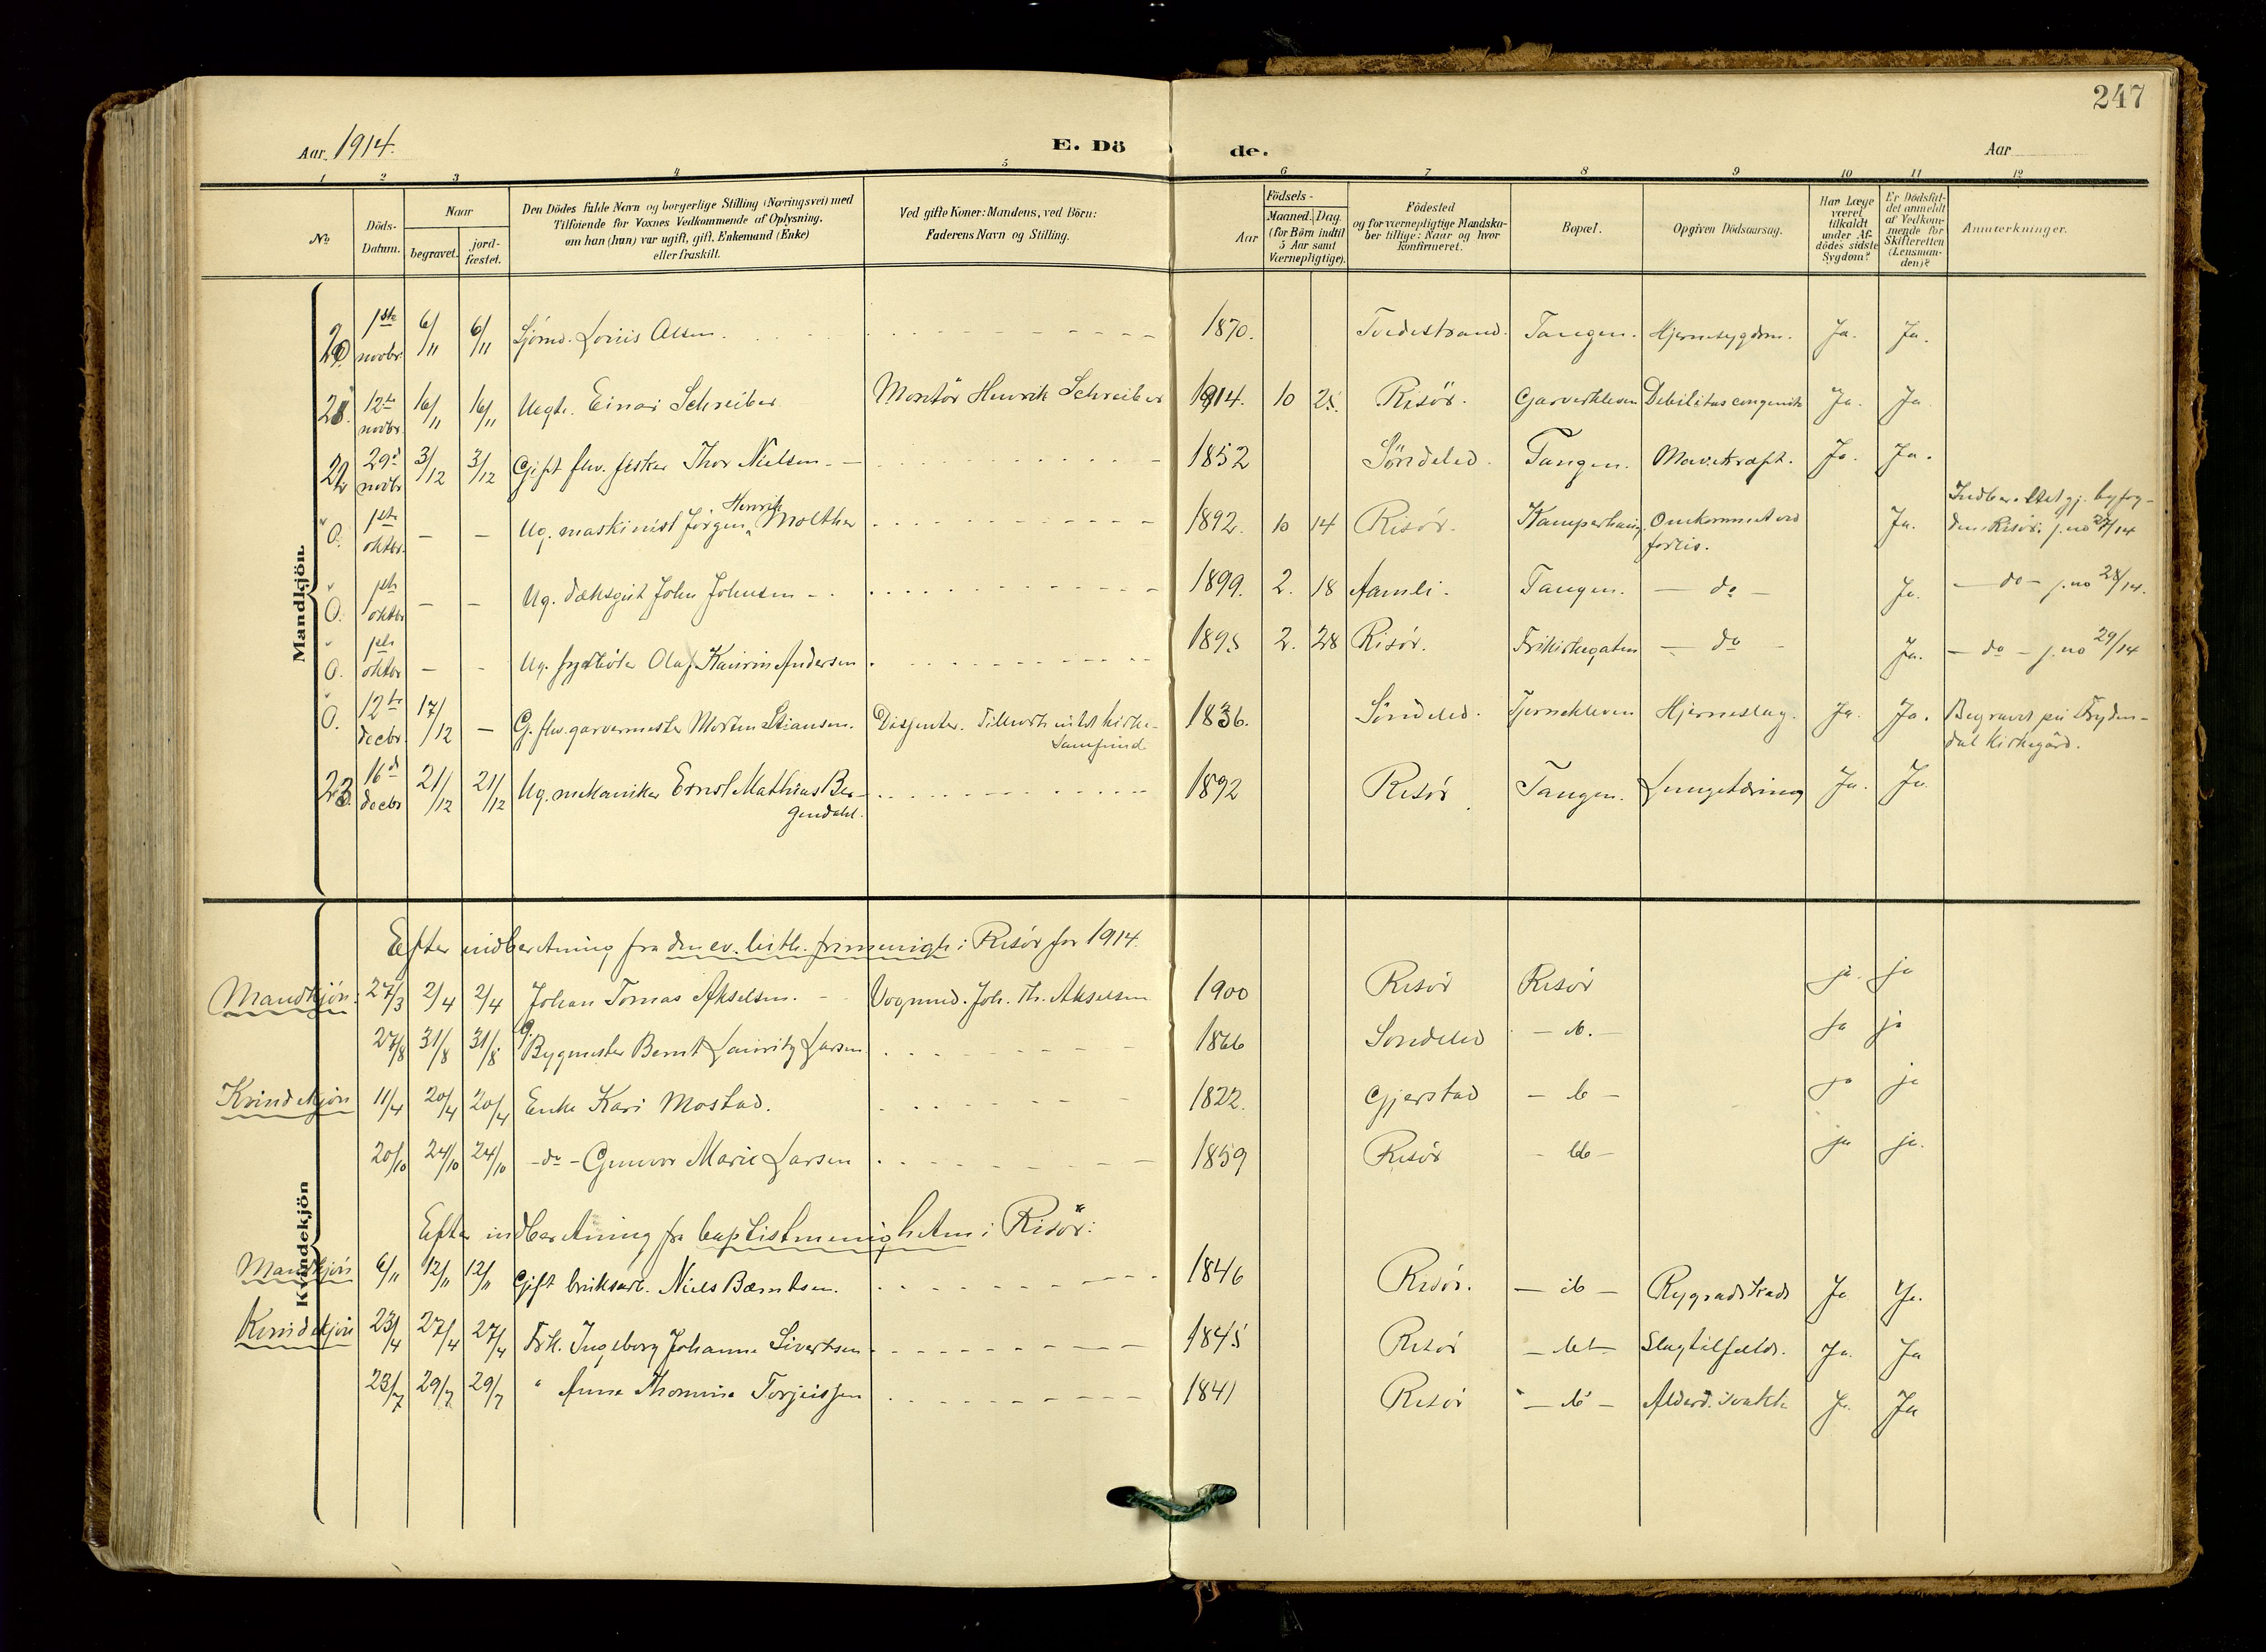 247
Aar 1914. E. Dö de. Aar
1 2 3 4 5 6 7 8 9 10 11 12
No
Döds-Datum.
Naar
begravet. jord-fæstet.
Den Dödes fulde Navn og borgerlige Stilling (Næringsvei) med
Tilföiende for Voxnes Vedkommende af Oplysning,
om han (hun) var ugift, gift, Enkemand (Enke)
eller fraskilt.
Ved gifte Koner: Mandens, ved Börn:
Faderens Navn og Stilling.
Födsels-
Aar Maaned. Dag.
(for Börn indtil
5 Aar samt
Værnepligtige).
Födested
og for værnepligtige Mandska-
ber tillige: Naar og hvor
konfirmeret.
Bopæl.
Opgiven Dödsaarsag.
Har Læge
været
tilkaldt
under Af-
dödes sidste
Sygdom?
Er Dödsfal-
det anmeldt
af Vedkom-
mende for
Skifteretten
(Lensman-
den)?
Anmærkninger.
Mandkjön.
20. 1ste novbr. 6/11 6/11 Sjömd. Louis Olsen. 1870. Tvedestrand. Tangen. Hjernesygdom. Ja. Ja.
21. 12te novbr. 16/11 16/11 Uegte. Einar Schreiber Montör Henrik Schreiber 1914. 10 25. Risör. Garverkleven Debilitas congenita Ja. Ja
22 29de novbr 3/12 3/12 Gift fhv. fisker Thor Nielsen 1852 Söndeled. Tangen. Mavekræft. Ja. Ja.
0. 1ste oktbr. - - Ug. maskinist Jörgen Henrik Molther 1892. 10 14 Risör. Kamperhaug. Omkommet ved Ja. Indberettet gj. byfog-
forlis. den Risör. j.no 27/14
0. 1ste oktbr - - Ug. dæksgut John Johnsen 1899. 2. 18 Aamli. Tangen. - do - Ja. - do - j.no 28/14.
0. 1ste oktbr - - Ug. fyrböter Olaf Andersen 1895 2. 28 Risör. Frikirkegaten - do - Ja. - do - j.no 29/14
0. 12te decbr. 17/12 - G. fhv. garvermester Morten Stiansen. Dissenter. Tilhörte intet kirke- 1836. Söndeled. Tjernekleven Hjerneslag. Ja. Ja. Begravet på Fryden-
samfund dal kirkegård.
23. 16de decbr 21/12 21/12 Ug. mekaniker Ernst Mathias Ber- 1892 Risör Tangen. Lungetæring Ja. Ja
gendahl.
Kvindekjön
Efter indberetning fra den ev. luth. frimenigh. i Risör for 1914.
Mandkjön: 27/3 2/4 2/4 Johan Tomas Akselsen. Vognmd. Joh. Th. Akselsen 1900 Risör Risör ja. ja
27/8 31/8 31/8 g. Bygmester Bernt Lauritz Larsen 1866 Sondeled - do. - ja ja
Kvindekjön 11/4 20/4 20/4 Enke Kari Mostad. 1822. Gjerstad - do - ja ja
20/10 24/10 24/10 -do- Gunvor Marie Larsen 1859 Risör - do - ja ja.
Efter indberetning fra baptistmenigheten i Risör:
Mandkjön 6/11 12/11 12/11 Gift bruksarb. Niels Bærntsen. 1846 Risör. - do - Rygradskade Ja Ja.
Kvindekjön 23/4 27/4 27/4 Frk. Ingeborg Johanne Sivertsen 1845 Risör - do - Slagtilfælde. Ja. Ja
23/7 29/7 29/7 " Anna Thomine Torjussen 1841 Risör - do - Alderd. svakh. Ja. Ja